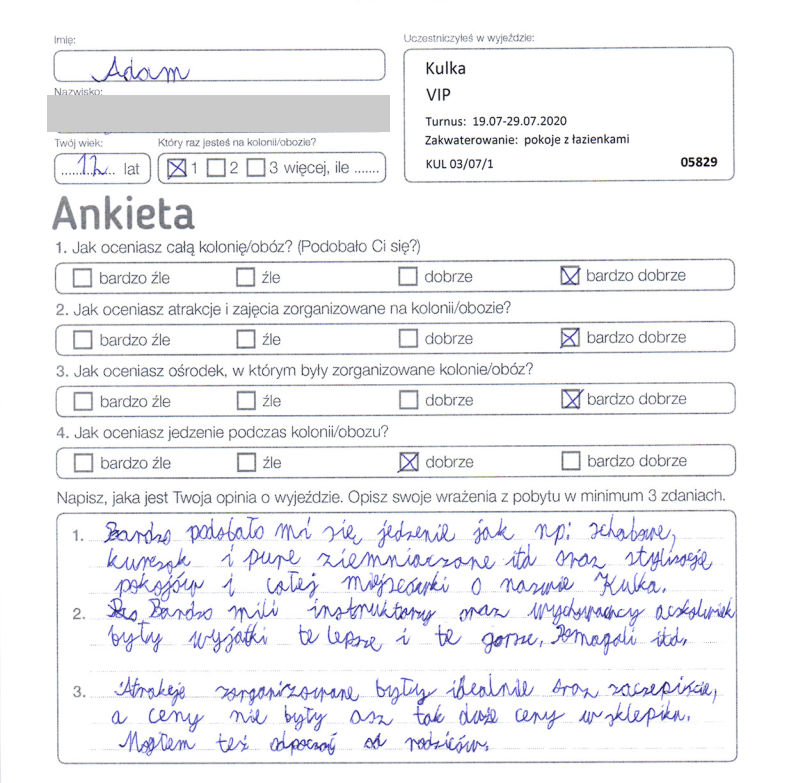 Imię:
Adam
Nazwisko:
Twój wiek:
12 lat
Który raz jesteś na kolonii/obozie?
1 2 3 więcej, ile .......
Uczestniczyłeś w wyjeździe:
Kulka
VIP
Turnus: 19.07-29.07.2020
Zakwaterowanie: pokoje z łazienkami
KUL 03/07/1 05829
Ankieta
1. Jak oceniasz całą kolonię/obóz? (Podobało Ci się?)
bardzo źle źle dobrze bardzo dobrze
2. Jak oceniasz atrakcje i zajęcia zorganizowane na kolonii/obozie?
bardzo źle źle dobrze bardzo dobrze
3. Jak oceniasz ośrodek, w którym były zorganizowane kolonie/obóz?
bardzo źle źle dobrze bardzo dobrze
4. Jak oceniasz jedzenie podczas kolonii/obozu?
bardzo źle źle dobrze bardzo dobrze
Napisz, jaka jest Twoja opinia o wyjeździe. Opisz swoje wrażenia z pobytu w minimum 3 zdaniach.
1. Bardzo podobało mi się jedzenie jak np: schabowe,
kurczak i pure ziemniaczane itd oraz stylizacje
pokojów i całej miejscówki o nazwie Kulka.
2. Bardzo mili instruktorzy oraz wychowawcy aczkolwiek
były wyjątki te lepsze i te gorsze. Pomagali itd.
3. Atrakcje zorganizowane były idealnie oraz zaczepiście,
a ceny nie były asz tak duże ceny w sklepiku.
Mogłem też odpocząć od rodziców.